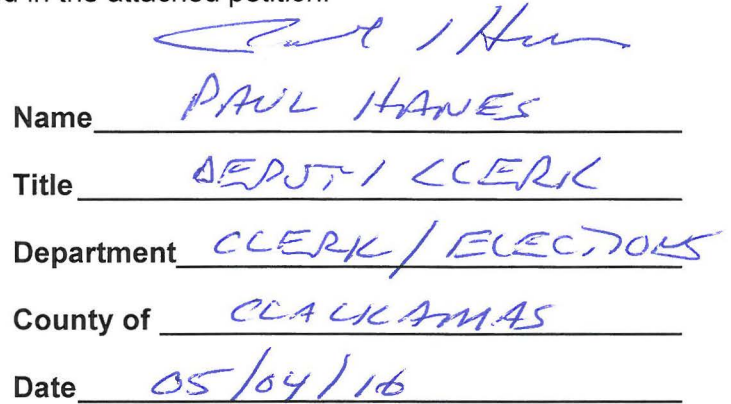 d in the attached petition.
Name PAUL HANES
Title DEPUTY CLERK
Department CLERK/ELECTIONS
County of CLACKAMAS
Date 05/04/16